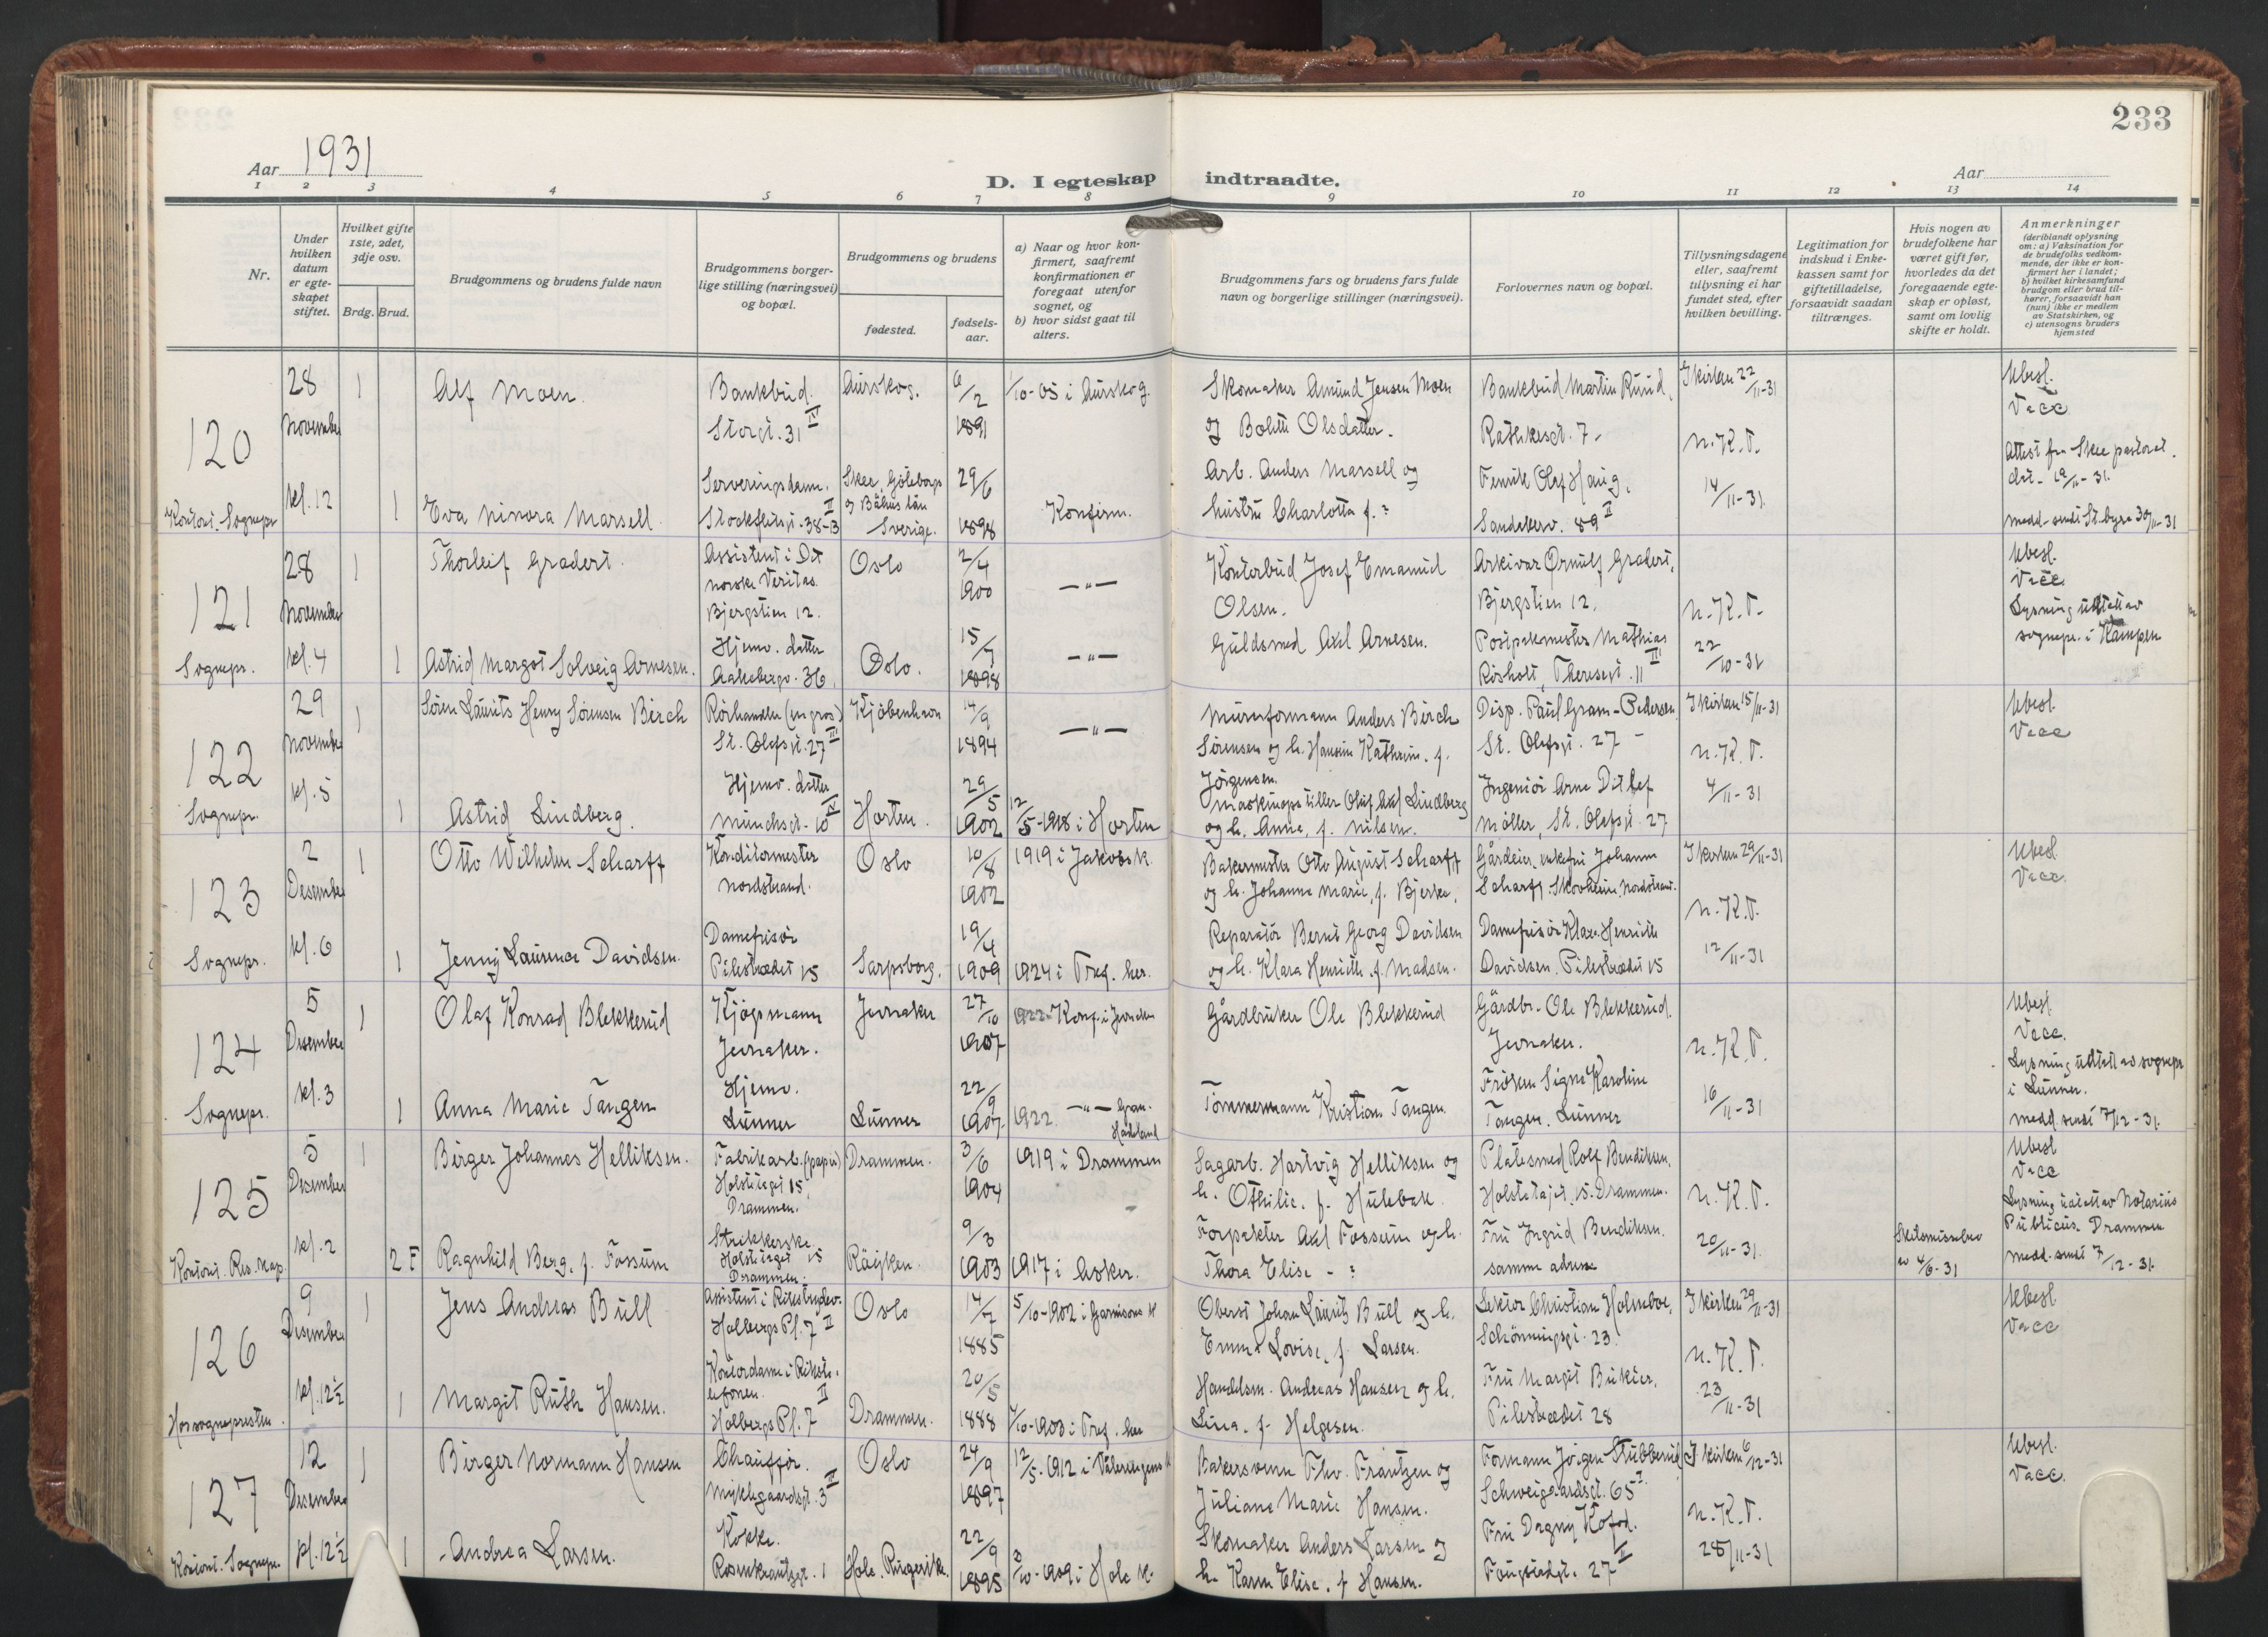 233
Aar 1931
D. I egteskap indtraadte.
Aar
1 2 3 4 5 6 7 8 9 10 11 12 13 14
Nr.
Under hvilken datum er egteskapet stiftet.
Hvilket gifte 1ste, 2det, 3dje osv.
Brdg. Brud.
Brudgommens og brudens fulde navn
Brudgommens borgerlige stilling (næringsvei) og bopæl.
Brudgommens og brudens
fødested.
fødselsaar.
a) Naar og hvor konfirmert, saafremt konfirmationen er foregaat utenfor sognet, og
b) hvor sidst gaat til alters.
Brudgommens fars og brudens fars fulde navn og borgerlige stillinger (næringsvei).
Forlovernes navn og bopæl.
Tillysningsdagene eller, saafremt tillysning ei har fundet sted, efter hvilken bevilling.
Legitimation for indskud i Enkekassen samt for giftetilladelse, forsaavidt saadan tiltrænges.
Hvis nogen av brudefolkene har været gift før, hvorledes da det foregaaende egteskap er opløst, samt om lovlig skifte er holdt.
Anmerkninger
(deriblandt oplysning om: a) Vaksination for de brudefolks vedkommende, der ikke er konfirmert her i landet;
b) hvilket kirkesamfund brudgom eller brud tilhører, forsaavidt han (hun) ikke er medlem av Statskirken, og
c) utensogns bruders hjemsted
120
Kontoret. Sognepr.
28
November
kl. 12
1
Alf Moen.
Bankbud.
Storgt. 31 IV
Aurskog.
6/2
1891
1/10-05 i Aurskog.
Skomaker Amund Jensen Moen
og Bolette Olsdatter.
Bankbud Martin Ruud,
Rathkesgt. 7.
I kirken 22/11-31
n.K.T.
14/11-31
Ubesl.
Vacc.
Attest fra Skee pastorat.
dat. 19/11-31.
1
Eva Ninora Marsell.
Serveringsdame.
Stockflethsgt. 38-B II
Skee, Göteborgs
og Båhus län
Sverige.
29/6
1898
Konfirm.
Arb. Anders Marsell og
hustru Charlotta f. ?
Fenrik Olaf Haug,
Sandakerv. 89 II
medd. sendt St. byrå 30/11-31
121
Sognepr.
28
November
kl. 4
1
Thorleif Gradert.
Assistent i Det
norske Veritas.
Bjergstien 12.
Oslo
2/4
1900
— " —
Kontorbud Josef Emanuel
Olsen.
Arkivar Ørnulf Gradert,
Bjergstien 12.
n.K.T.
22/10-31
Ubesl.
Vacc.
Lysning utstedt av
sognepr. i Kampen
1
Astrid Margot Solveig Arnesen.
Hjemv. datter
Aakebergv. 36.
Oslo.
15/7
1898
— " —
Guldsmed Axel Arnesen.
Postpakmester Mathias
Røsholt, Theresesgt. 11 III
122
Sognepr.
29
November
kl. 5
1
Søren Laurits Henry Sørensen Birch
Rørhandler (en gros)
St. Olafsgt. 27 III
Kjøbenhavn
14/9
1894
— " —
Murerformann Anders Birch
Sørensen og h. Hansine Kathrine. f.
Jørgensen.
Disp. Paul Gram-Pedersen
St. Olafsgt. 27 –
I kirken 15/11-31
n.K.T.
4/11-31
Ubesl.
Vacc
1
Astrid Lindberg.
Hjemv. datter
Munchsgt. 10 IV
Horten.
29/5
1902
12/5-1918 i Horten
Maskinopstiller Oluf Axel Lindberg
og h. Anna, f. Nilsen.
Ingeniør Arne Ditlef
Møller, St. Olafsgt. 27
123
Sognepr.
2
Desember
kl. 6
1
Otto Wilhelm Scharff
Konditormester
Nordstrand.
Oslo
10/8
1902
1919 i Jakobs k.
Bakermester Otto August Scharff
og h. Johanne Marie, f. Bjerke.
Gårdeier. enkefru Johanne
Scharff, Skovheim, Nordstrand.
I kirken 29/11-31
n.K.T.
12/11-31
Ubesl.
Vacc.
1
Jenny Laurence Davidsen.
Damefrisør
Pilestrædet 15
Sarpsborg.
19/4
1909
1924 i Tref. her.
Reparatør Bernt Georg Davidsen
og h. Klara Henriette f. Madsen.
Damefrisør Klara Henriette
Davidsen. Pilestrædet 15
124
Sognepr.
5
Desember
kl. 3
1
Olaf Konrad Blekkerud
Kjøpmann
Jevnaker.
Jevnaker
27/10
1907
1922 Konf. i Jevnaker
Gårdbruker Ole Blekkerud
Gårdbr. Ole Blekkerud.
Jevnaker.
n.K.T.
16/11-31
Ubesl.
Vacc.
Lysning utstedt av sognepr
i Lunner.
medd. sendt 7/12-31.
1
Anna Marie Tangen
Hjemv.
Lunner
Lunner
22/9
1907.
1922. — " — Gran.
Hadeland
Tømmermann Kristian Tangen.
Frøken Signe Karoline
Tangen. Lunner
125
Kontoret. Res. kap.
5
Desember
kl. 2
1
Birger Johannes Helliksen.
Fabrikarb. (papir)
Holstetaget 15,
Drammen.
Drammen.
3/6
1904
1919 i Drammen
Sagarb. Hartvig Helliksen og
h. Othilie. f. Hulebak.
Platesmed Rolf Bendiksen,
Holstetajet. 15. Drammen.
n.K.T.
20/11-31.
Ubesl
Vacc
Lysning utstedt av Notarius
Publicus. Drammen
medd. sendt 7/12-31.
2 F
Ragnhild Berg. f. Fossum
Strikkerske.
Holstetaget 15
Drammen.
Røyken.
9/3
1903
1917 i Asker.
Forpakter Axel Fossum og h.
Thora Elise – ?
Fru Ingrid Bendiksen.
samme adresse
Skilsmissebev
av 4/6-31
126
Hos sognepresten.
9
Desember
kl. 12½
1
Jens Andreas Bull
Assistent i Rikstrudev.
Holbergs Pl. 7 II
Oslo
14/7
1885
5/10-1902 i Garnisons k
Oberst Johan Lauritz Bull og h.
Emma Lovise, f. Larsen.
Lektor Christian Holmboe,
Schønningsgt. 23.
I kirken 29/11-31
n.K.T.
23/11-31
Ubesl.
Vacc
1
Margit Ruth Hansen.
Kontordame i Rikste-
lefonen.
Holbergs Pl. 7 II
Drammen.
20/5
1888
4/10-1903 i Tref. her
Handelsm. Andreas Hansen og h.
Lina. f. Helgesen.
Fru Margit Bukier,
Pilestrædet 28
127
Kontoret. Sognepr.
12
Desember
kl. 12½
1
Birger Normann Hansen
Chauffør.
Myklegaardsgt. 3 II
Oslo
24/9
1897
12/5-1912 i Vålerengens k
Bakersvenn Thv. Frantzen og
Juliane Marie Hansen.
Formann Jørgen Stubberud
Schweigaardsgt. 65 I
I kirken 6/12-31
n.K.T.
28/11-31
Ubesl.
Vacc.
1
Andrea Larsen.
Kokke.
Rosenkrantzgt. 1
Hole. Ringerike.
22/9
1895
3/10-1909 i Hole k.
Skomaker Anders Larsen og
h. Karen Elise. f Hansen.
Fru Dagny Kofod.
Fougstadgt. 27 II